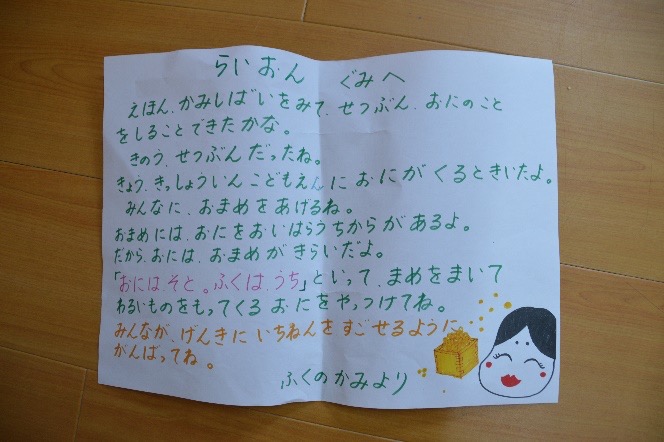 らいおん ぐみへ
えほん、かみしばいをみて、せつぶん、おにのこと
をしることできたかな。
きのう、せつぶんだったね。
きょう、きっしょういんこどもえんに おにが くるときいたよ。
みんなに、おまめをあげるね。
おまめには、おにをおいはらうちからがあるよ。
だから、おには、おまめがきらいだよ。
「おには、そと。ふくは、うち」といって、まめをまいて
わるいものをもってくる おにをやっつけてね。
みんなが、げんきに いちねんを すごせるように、
がんばってね。
ふくのかみより